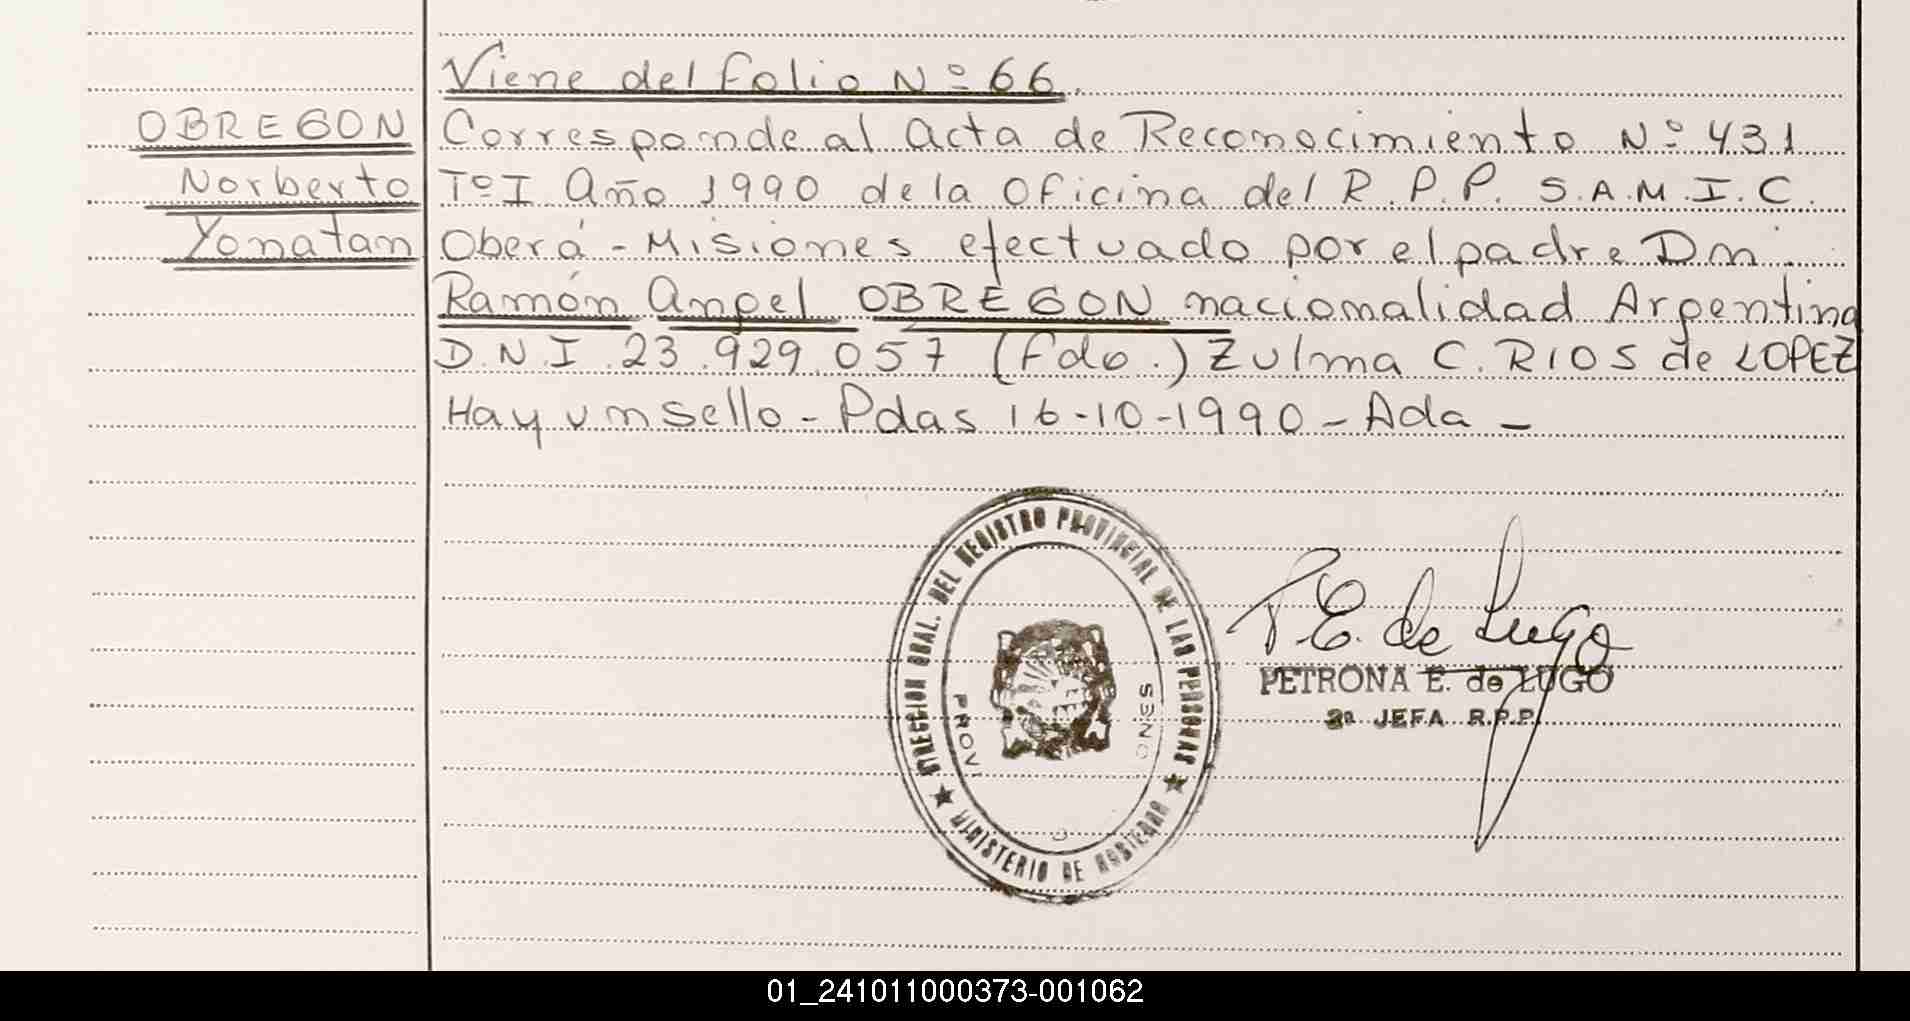 Viene del folio Nº 66.
OBREGON
Norberto
Yonatan
Corresponde al Acta de Reconocimiento Nº 431
Tº I Año 1990 de la Oficina del R.P.P. S.A.M.I.C.
Oberá - Misiones efectuado por el padre Dn.
Ramón Angel OBREGON nacionalidad Argentina
D.N.I. 23.929.057 (fdo.) Zulma C. RIOS de LOPEZ
Hay un sello - Pdas 16-10-1990 - Ada -
DIRECCION GRAL. DEL REGISTRO PROVINCIAL DE LAS PERSONAS
MINISTERIO DE
PROVI
ONES
P.E. de Lugo
PETRONA E. de LUGO
2ª JEFA R.P.P.
01_241011000373-001062